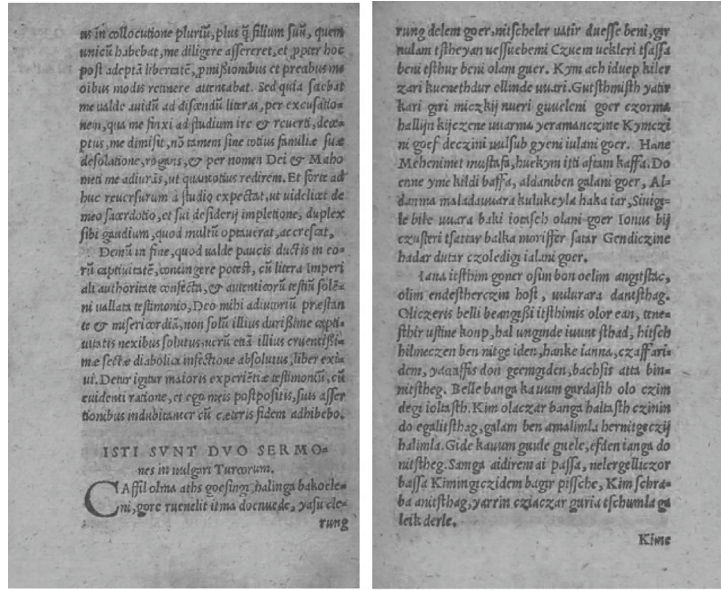 us in collocutione pluriũ, plus q̃ filium suũ, quem
unicũ habebat, me diligere assereret, et ꝓpter hoc
post adeptã libertatẽ, ꝓmißionibus et precabus me
oibus modis retinere attentabat. Sed quia sciebat
me ualde auidũ ad discendũ literas, per excusatio-
nem, qua me finxi ad studium ire & reuerti, dece-
ptus, me dimisit, nõ tamem sine totius familiæ suæ
desolatione, rogans, & per nomen Dei & Maho
meti me adiurãs, ut quantotius redirem. Et forte ad
huc reuersurum à studio expectat, ut uidelicet de
meo sacerdotio, et sui desiderij impletione, duplex
sibi gaudium, quod multũ optauerat, accrescat.
Demũ in fine, quod ualde paucis ductis in eo-
rũ captiuitatẽ, contingere potest, cũ litera Imperi
ali authoritate confecta, & autenticorũ testiũ solẽ-
ni uallata testimonio, Deo mihi adiutoriũ præstan
te & misericordiã, non solũ illius durißime capti-
uitatis nexibus solutus, uerũ etiã illius cruentißi-
mæ sectæ diabolica infectione absolutus, liber exi-
ui. Detur igitur maioris experiẽtiæ testimoniũ, cũ
euidenti ratione, et ego meis postpositis, suis asser
tionibus indubitanter cũ cæteris fidem adhibebo.
ISTI SVNT DVO SERMO-
nes in uulgari Turcorum.
CAffil olma aths goesingi, halinga bakocle-
ni, gore ruenelit itma docnuede, yasu cle-
rung
rung delem goer, nitscheler uatir duesse beni, gir
nulam tstheyan uessuebemi Czuem uckleri tsassa
beni tsthur beni olam guer. Kym ach iduep kiler
zari kuenethdur ellinde uuari. Gutsthmisth yatir
kari giri miczkij nueri guueleni goer czorma
hallijn kijczene uuarma yeramanczine Kymczi
ni goef deczini uulsub gyeni iulani goer. Hane
Mehenimet mustafa, huekym isti astam kaffa. Do
enne yme kildi baffa, aldamben galani goer, Al-
danma maladauuara kulukeyla haka iar, Siuigi-
le bile uuara baki iotisch olani goer Ionus bij
czusteri tsattar balka moriffer satar Gendiczine
hadar dutar czoledigi ialani goer.
Iana iltsthim goner osim bon oelim angitstac,
olim endestherczin host, uulurara dantsthag.
Oliczeris belli beangißi iltsthimis olor ean, tene-
sthir ustine konp, hal unginde iuunt sthad, hitsch
bilmeczen ben nitge iden, hanke ianna, czaffari-
dem, yanaffis don geengiden, bachsis atta bin-
nitstheg. Belle banga kauum gardasth olo czim
degi ioltasth. Kim olaczar banga haltasth czinin
do egalitsthag, galam ben amalimla hernitgeczij
halimla. Gide kauum guule guele, esden ianga do
nitstheg. Sanga aidirem ai passa, nelergelliczor
bassa Kimingczidem bagir pissche, Kim schra-
ba anitsthag, yarrin cziaczar guria tschumla ga
leik derle.
Kime